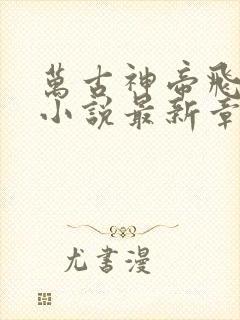 萬古神帝飛
小說最新章
尤書漫